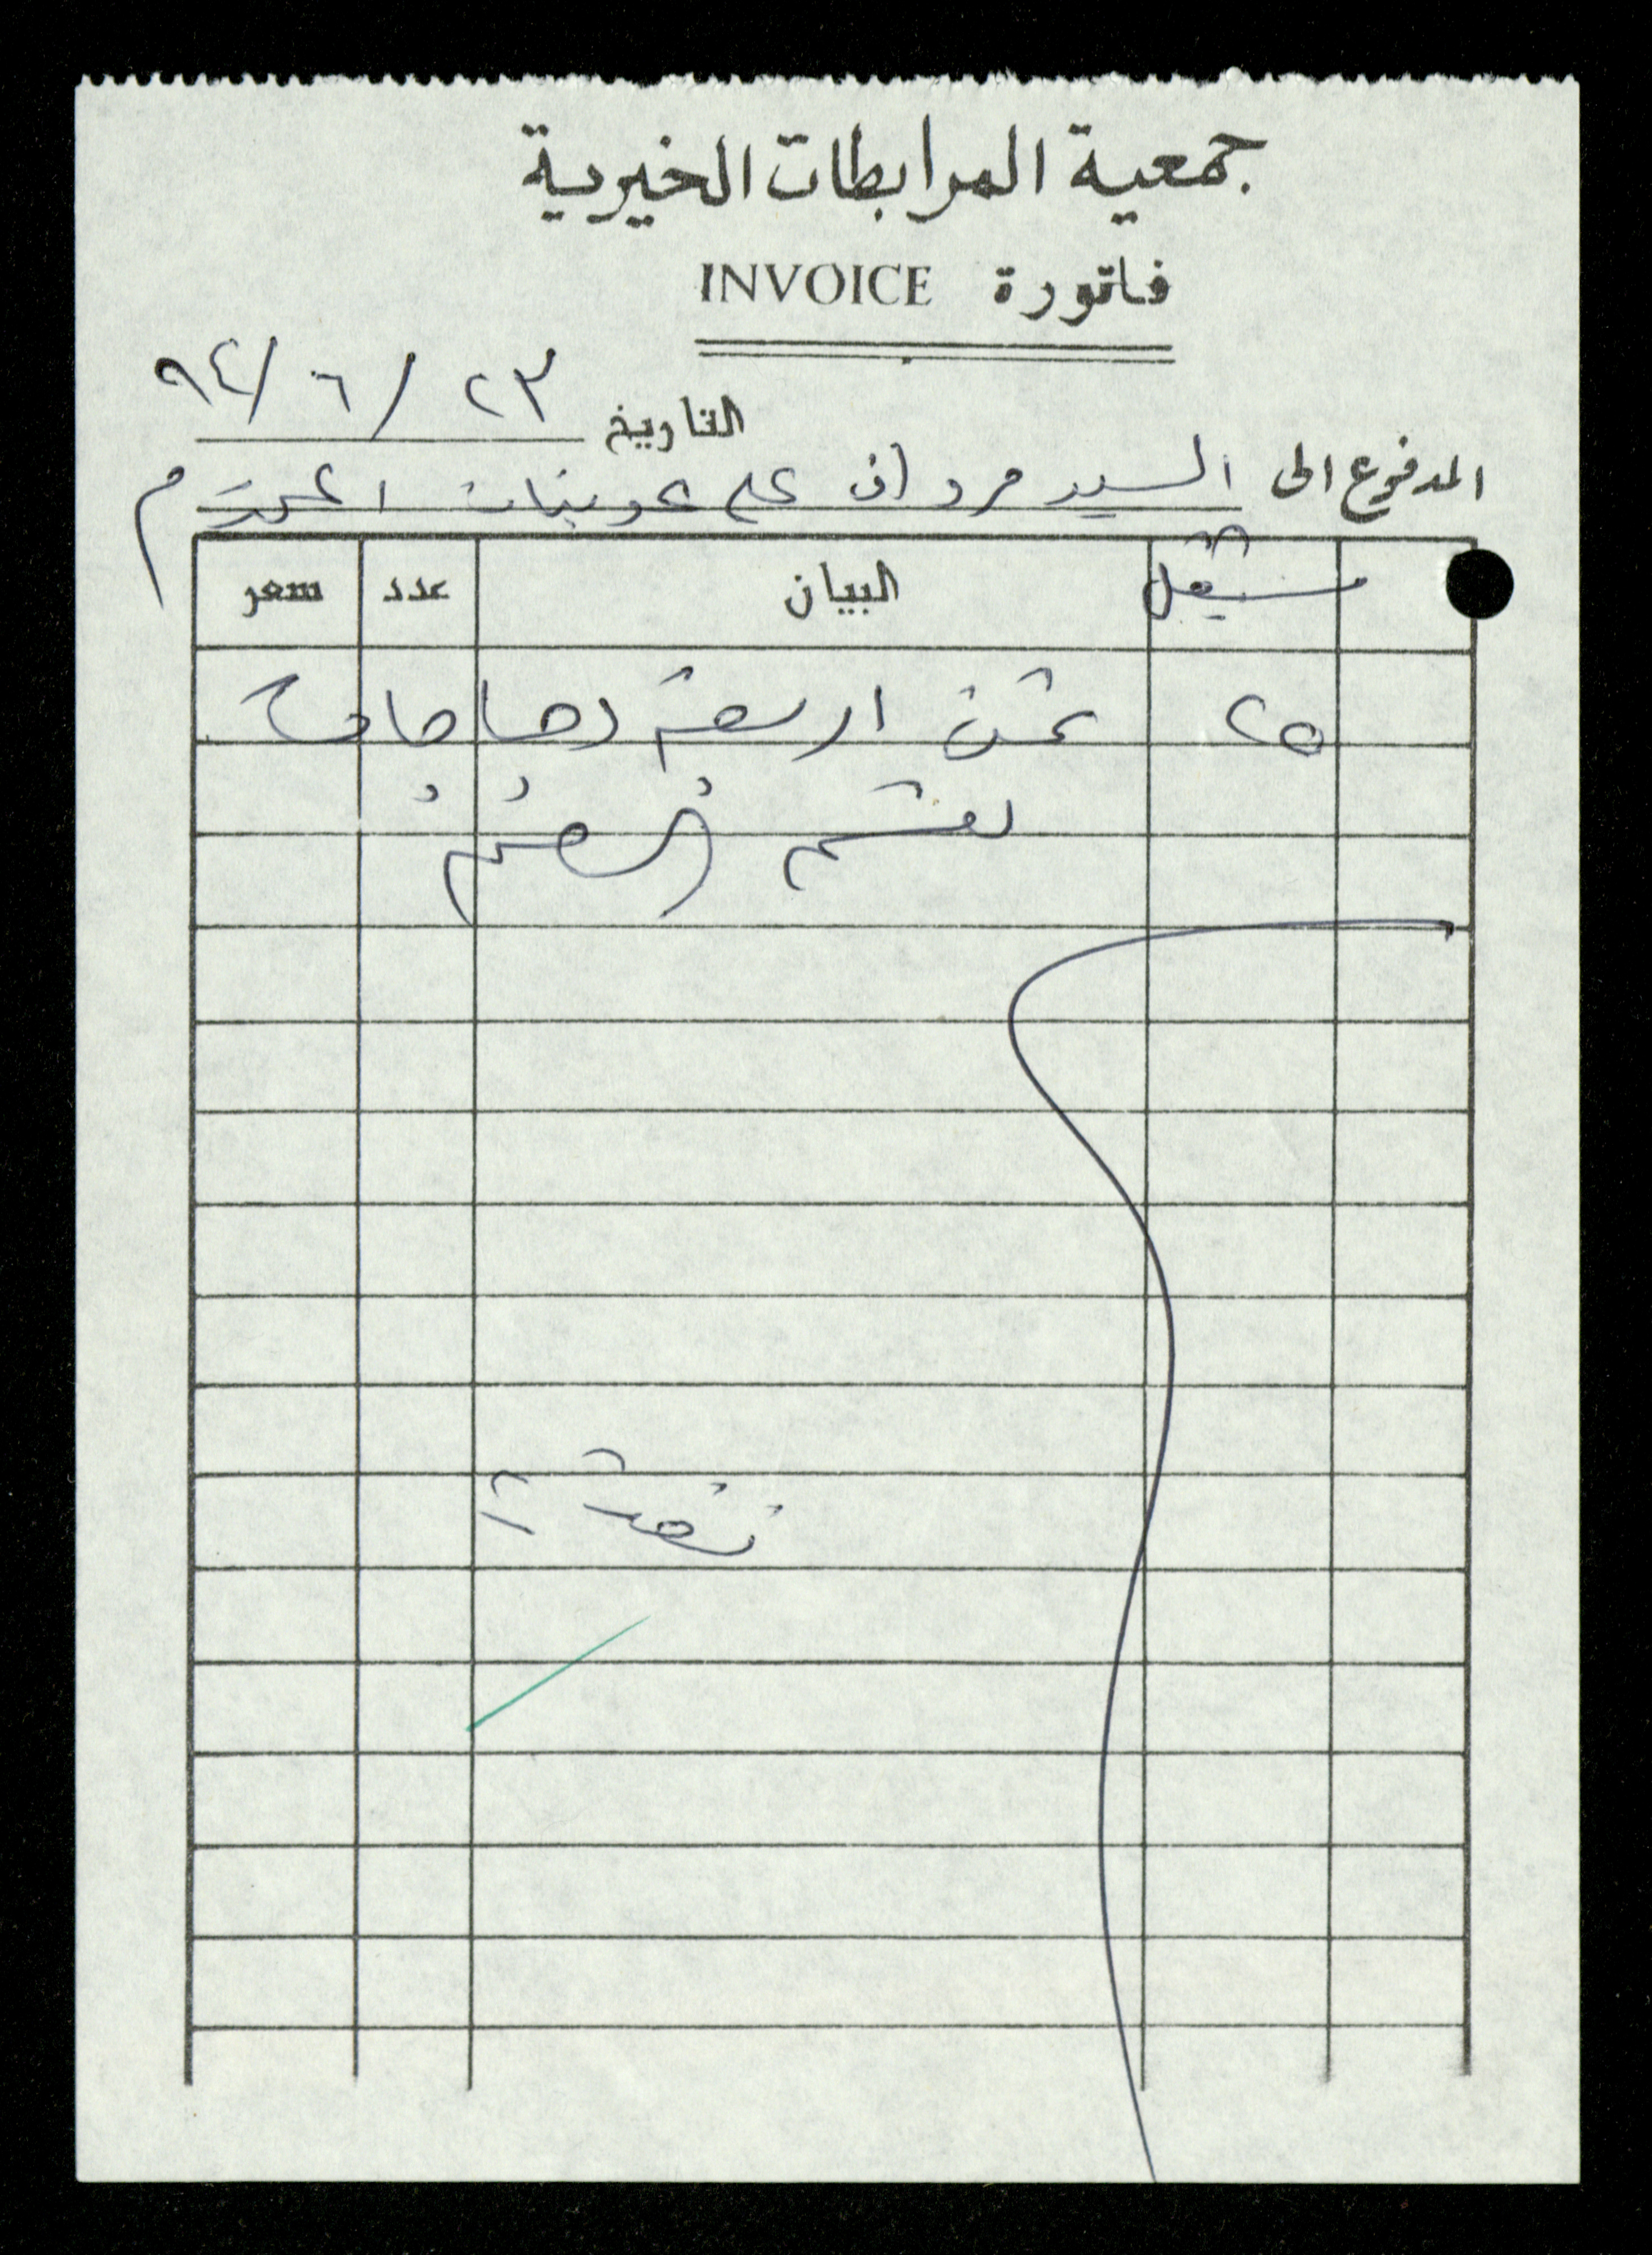 جمعية المرابطات الخيرية
فاتورة INVOICE
التاريخ ٢٣ / ٦ / ٩٤
المدفوع الى السيد مروان علي عوينات المحترم
شيقل البيان عدد سعر
٢٥ ثمن اربعة دجاجات
لقسم
نقدية